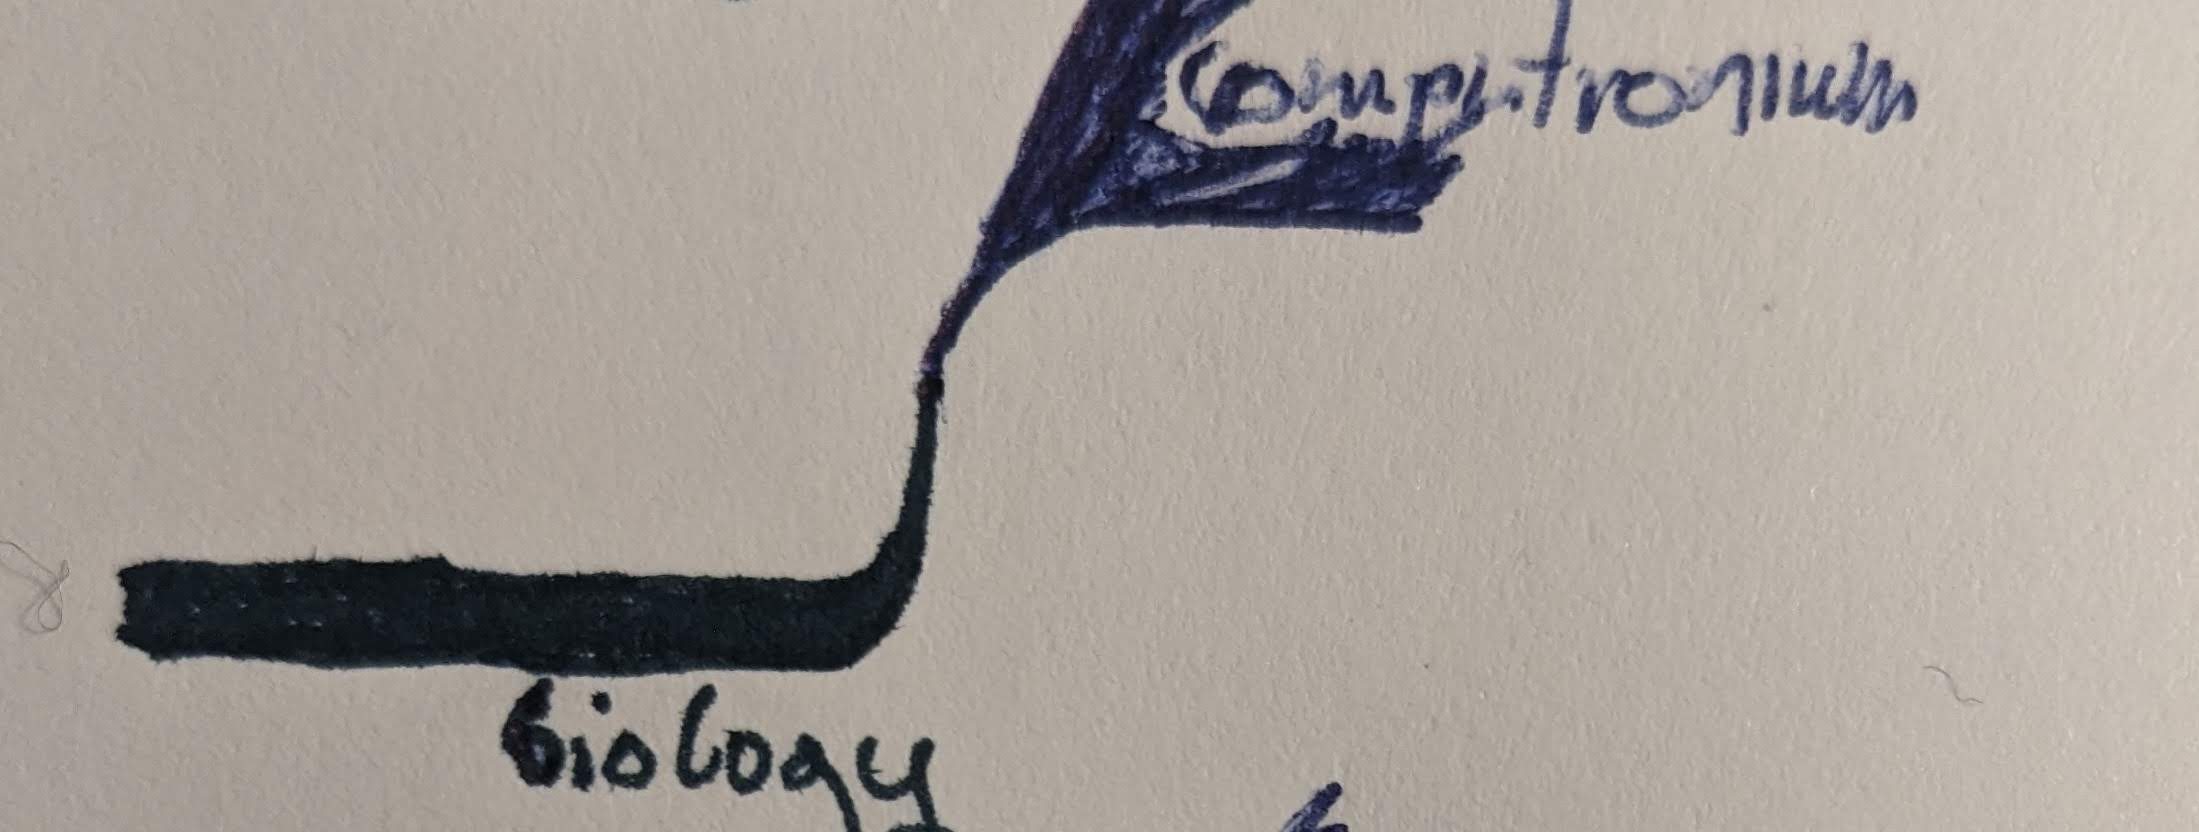 Computronium
biology